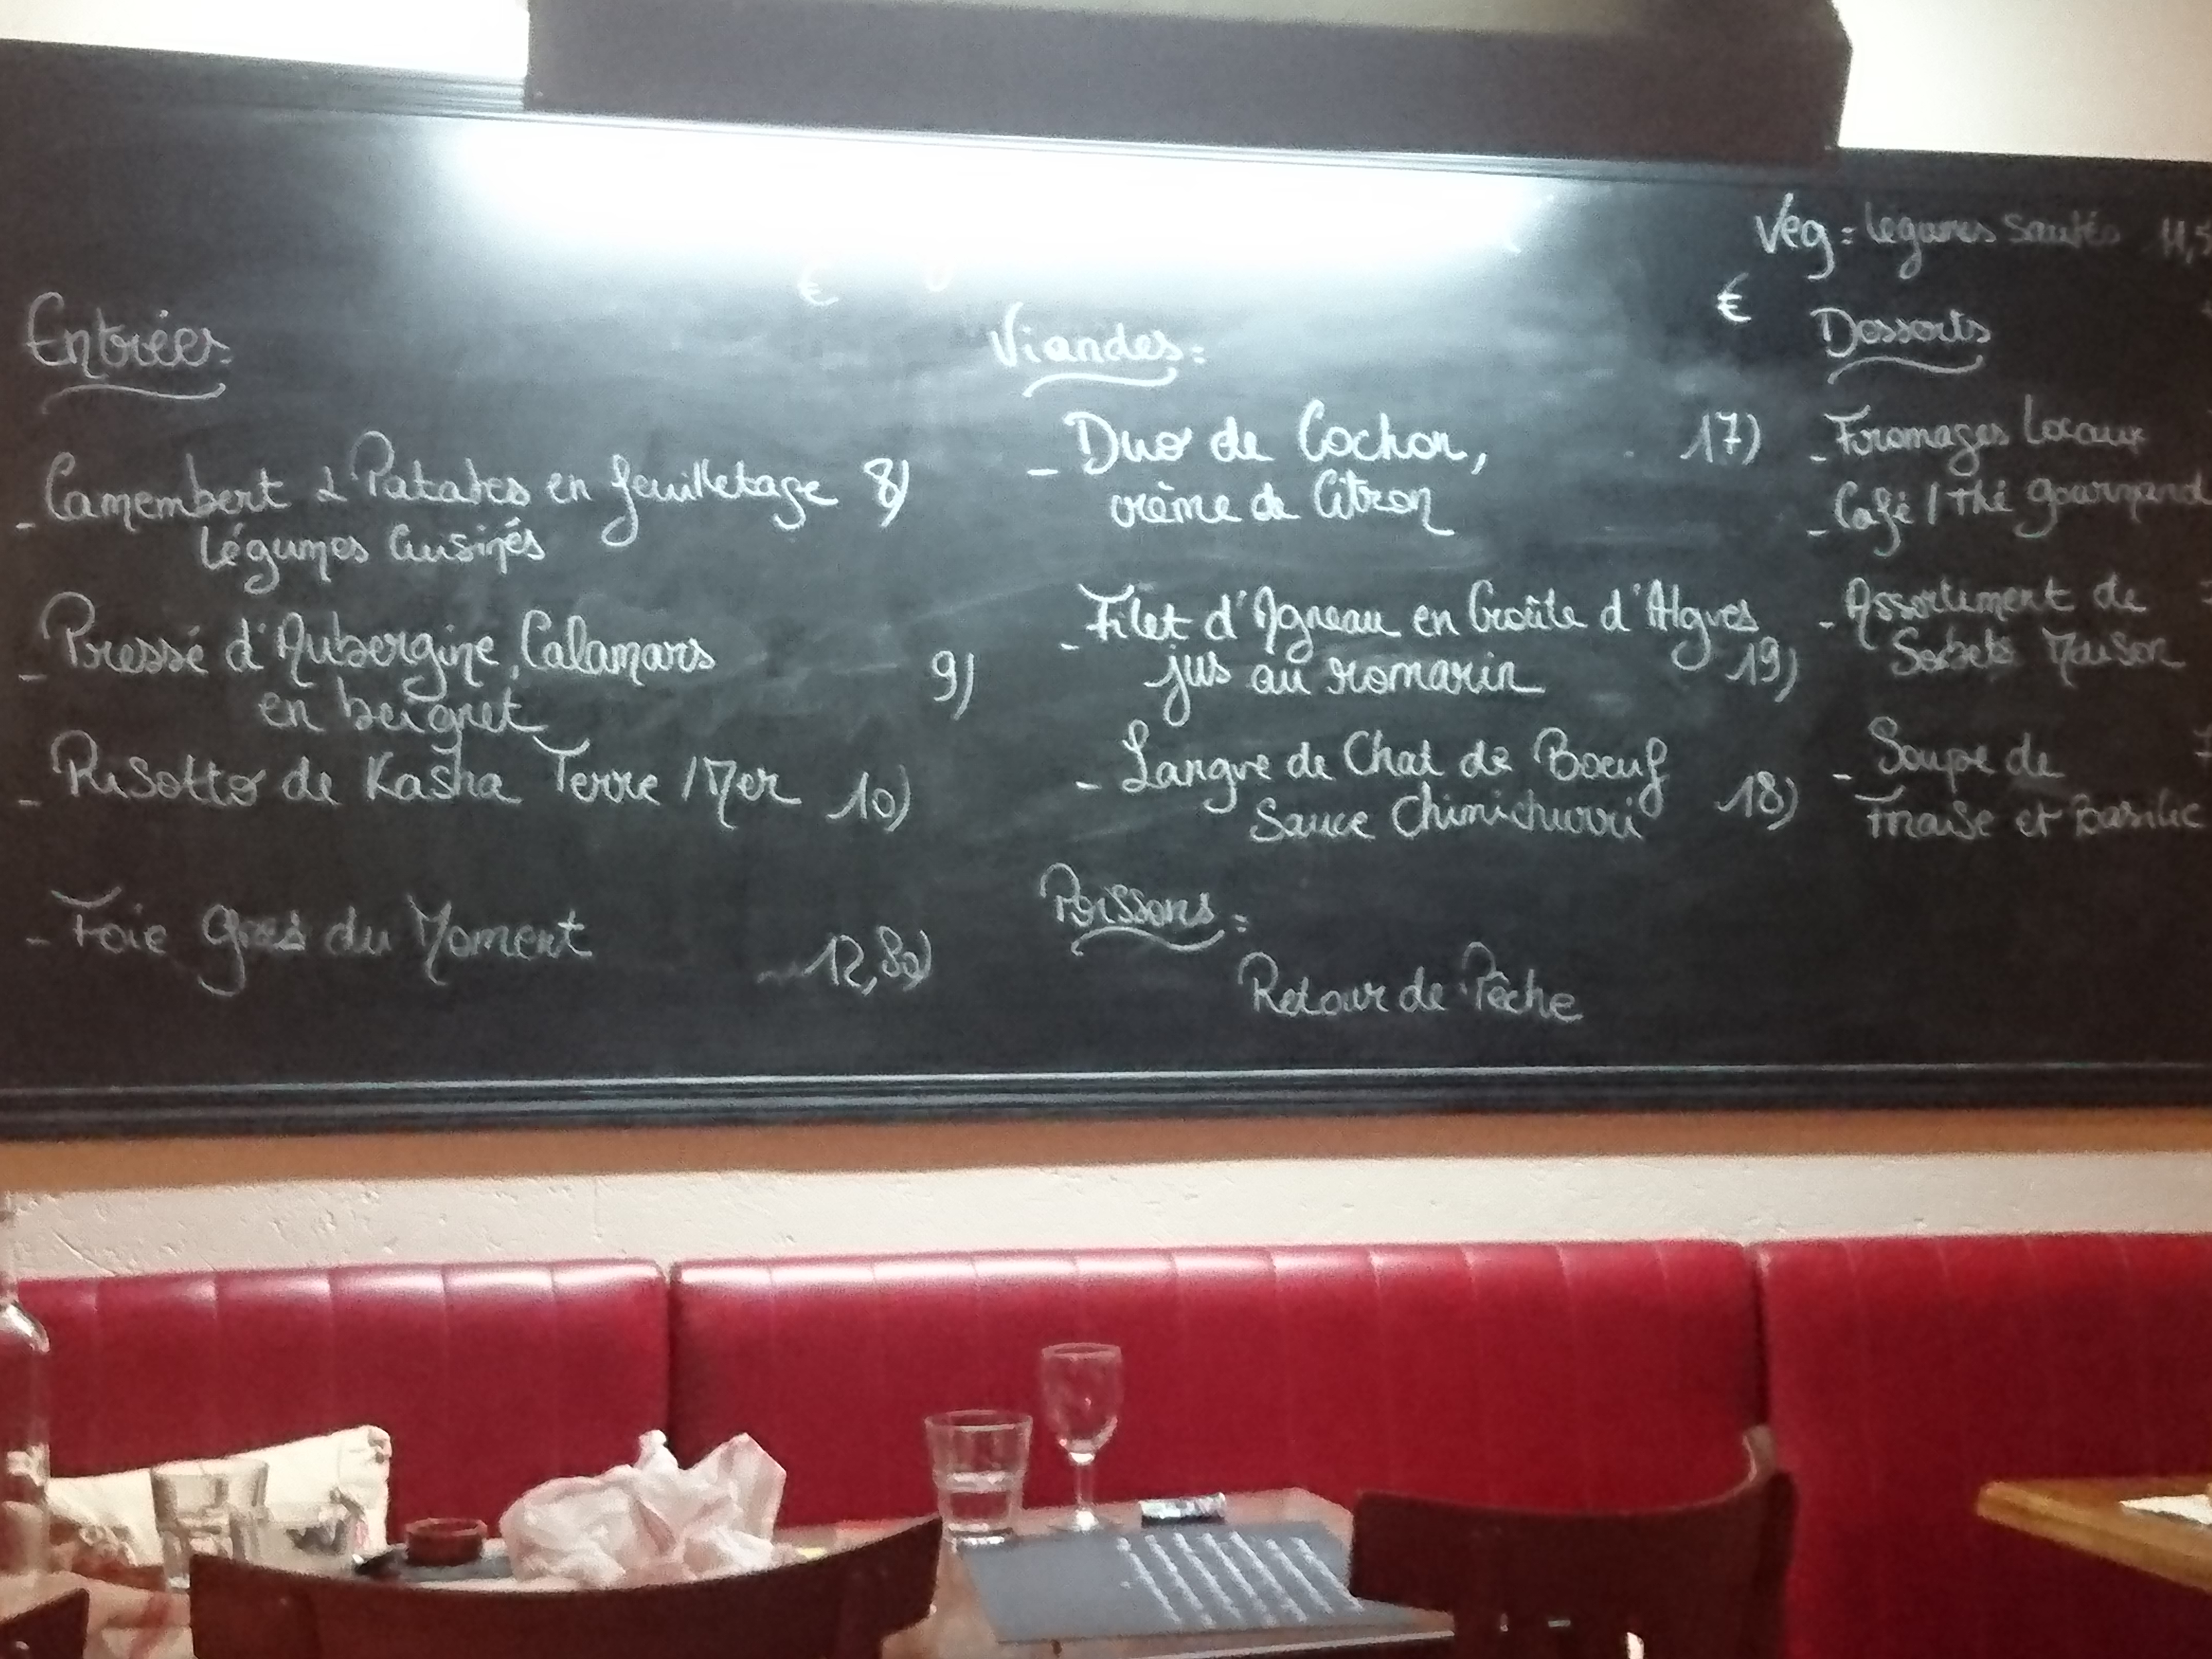 Entrées:
€
- Camembert & Patates en feuilletage 8)
Légumes Cuisinés
- Pressé d'Aubergine, Calamars
en beignet 9)
- Risotto de Kasha Terre / Mer 10)
- Foie gras du Moment 12,80)
Viandes:
€
- Duo de Cochon, 17)
crème de Citron
- Filet d'Agneau en Croûte d'Algues
jus au romarin 19)
- Langue de Chat de Boeuf
Sauce Chimichurri 18)
Poissons:
Retour de Pêche
Veg: légumes sautés
Desserts
- Fromages Locaux
- Café / Thé gourmand
- Assortiment de
Sorbets Maison
- Soupe de
Fraise et Basilic